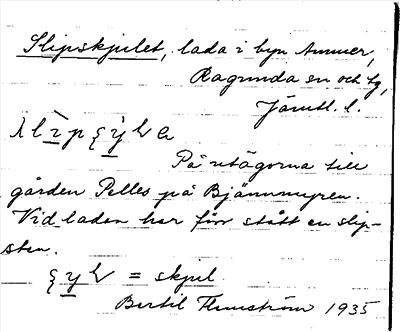 Slipskjulet, lada i byn Ammer,
Ragunda sn och tg,
Jämtl. l.
På utägorna till
gården Pelles på Bjännmyren.
Vid ladan har förr stått en slip-
sten.
= skjul.
Bertil Flemström 1935